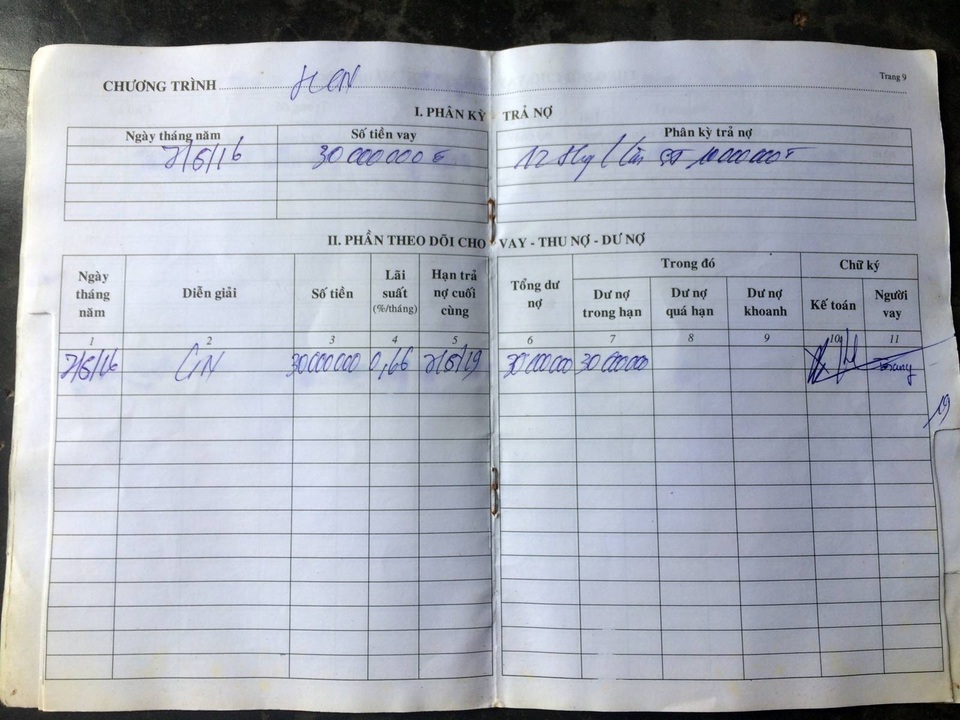 CHƯƠNG TRÌNH HCN
Trang 9
I. PHÂN KỲ TRẢ NỢ
Ngày tháng năm Số tiền vay Phân kỳ trả nợ
7/5/16 30000000đ 12 thg / lần ST 10000000đ
II. PHẦN THEO DÕI CHO VAY - THU NỢ - DƯ NỢ
Ngày tháng năm Diễn giải Số tiền Lãi suất (%/tháng) Hạn trả nợ cuối cùng Tổng dư nợ Trong đó Chữ ký
Dư nợ trong hạn Dư nợ quá hạn Dư nợ khoanh Kế toán Người vay
1 2 3 4 5 6 7 8 9 10 11
7/5/16 GN 30000000 0,66 7/5/19 30000000 30000000
19